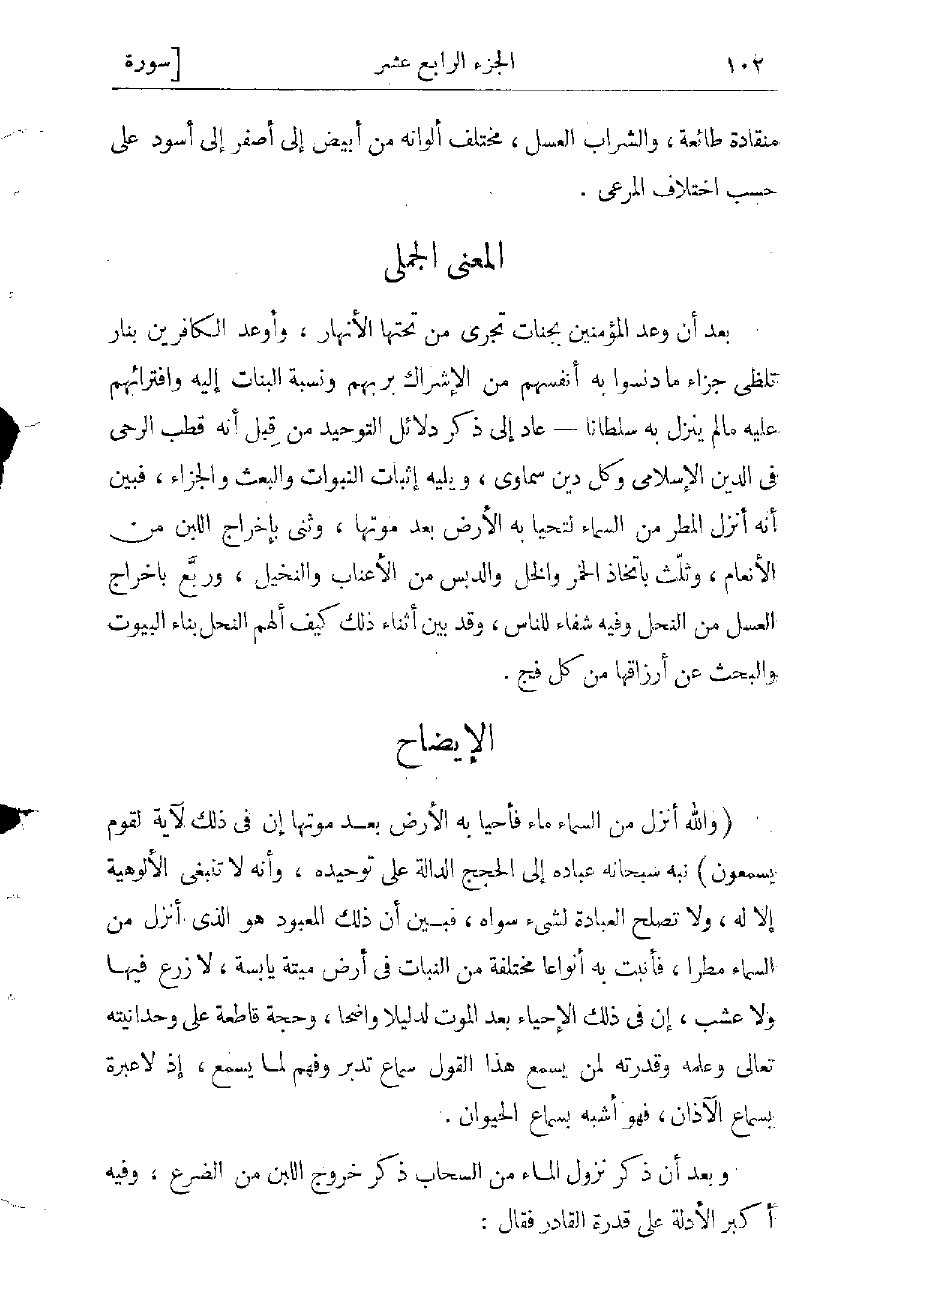 ١٠٢ الجزء الرابع عشر [سورة
منقادة طائعة ، والشراب العسل ، مختلف ألوانه من أبيض إلى أصفر إلى أسود على
حسب اختلاف المرعى .
المعنى الجملى
بعد أن وعد المؤمنين بجنات تجرى من تحتها الأنهار ، وأوعد الكافرين بنار
تلظى جزاء ما دنسوا به أنفسهم من الإشراك بربهم ونسبة البنات إليه وافترائهم
عليه مالم ينزل به سلطانا — عاد إلى ذكر دلائل التوحيد من قِبل أنه قطب الرحى
فى الدين الإسلامى وكل دين سماوى ، ويليه إثبات النبوات والبعث والجزاء ، فبين
أنه أنزل المطر من السماء لتحيا به الأرض بعد موتها ، وثنى بإخراج اللبن من
الأنعام ، وثلّث باتخاذ الخمر والخل والدبس من الأعناب والنخيل ، وربَّع باخراج
العسل من النحل وفيه شفاء للناس ، وقد بين أثناء ذلك كيف ألهم النحل بناء البيوت
والبحث عن أرزاقها من كل فج .
الإيضاح
( والله أنزل من السماء ماء فأحيا به الأرض بعد موتها إن فى ذلك لآية لقوم
يسمعون ) نبه سبحانه عباده إلى الحجج الدالة على توحيده ، وأنه لا تنبغى الألوهية
إلا له ، ولا تصلح العبادة لشىء سواه ، فبين أن ذلك المعبود هو الذى أنزل من
السماء مطرا ، فأنبت به أنواعا مختلفة من النبات فى أرض ميتة يابسة ، لا زرع فيها
ولا عشب ، إن فى ذلك الإحياء بعد الموت لدليلا واضحا ، وحجة قاطعة على وحدانيته
تعالى وعلمه وقدرته لمن يسمع هذا القول سماع تدبر وفهم لما يسمع ، إذ لاعبرة
بسماع الآذان ، فهو أشبه بسماع الحيوان .
وبعد أن ذكر نزول الماء من السحاب ذكر خروج اللبن من الضرع ، وفيه
أكبر الأدلة على قدرة القادر فقال :